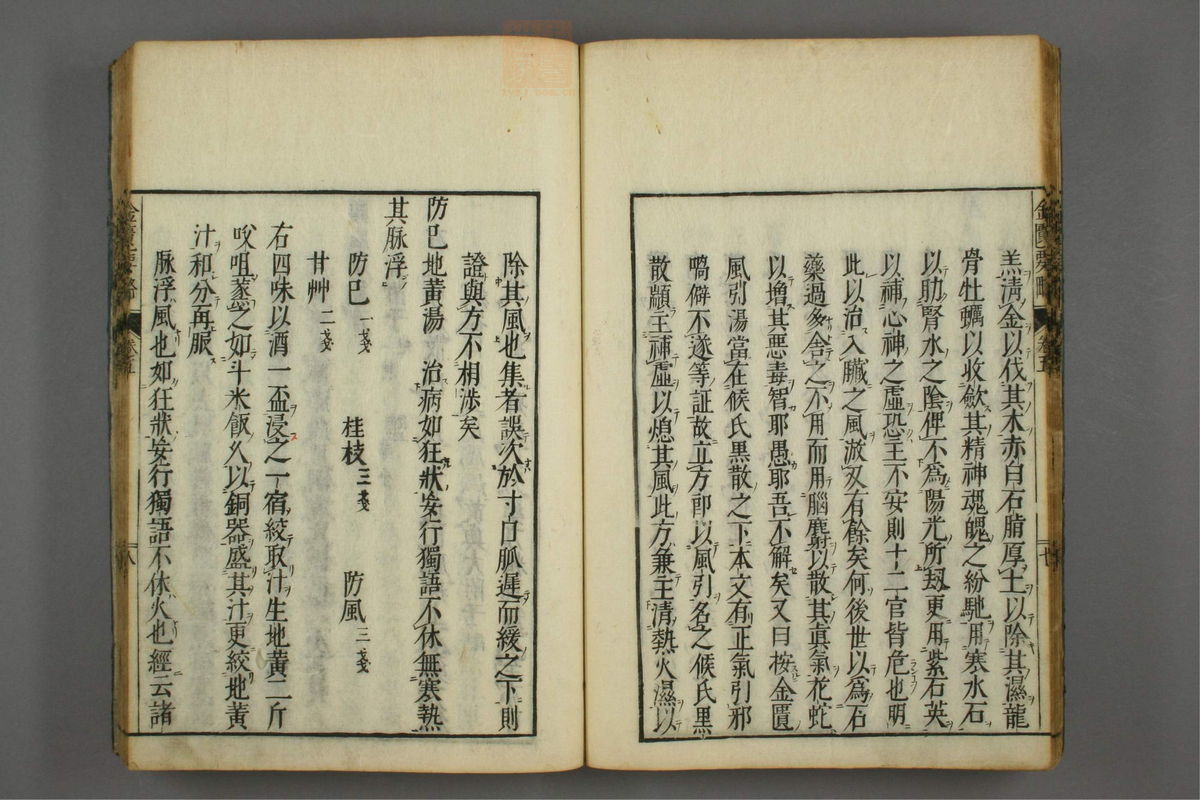 羔清金以伐其木赤白石脂厚土以除其濕龍
骨牡蠣以收斂其精神魂魄之紛馳用寒水石
以助腎水之陰俾不為陽光所刼更用紫石英
以補心神之虛恐主不安則十二官皆危也明
此以治入臟之風游刃有餘矣何後世以為石
藥過多舍之不用而用腦麝以散其真氣花蛇
以增其惡毒智耶愚耶吾不解矣又曰按金匱
風引湯當在候氏黑散之下本文有正氣引邪
喎僻不遂等証故立方即以風引名之候氏黑
散顓主補虛以熄其風此方兼主清熱火濕以
除其風也集者誤次於寸口脈遲而緩之下則
證與方不相涉矣
防已地黃湯 治病如狂狀妄行獨語不休無寒熱
其脉浮
防已 一戔 桂枝 三戔 防風 三戔
甘艸 二戔
右四味以酒一盃浸之一宿絞取汁生地黃二斤
㕮咀蒸之如斗米飯久以銅器盛其汁更絞地黃
汁和分再服
脉浮風也如狂狀妄行獨語不休火也經云諸